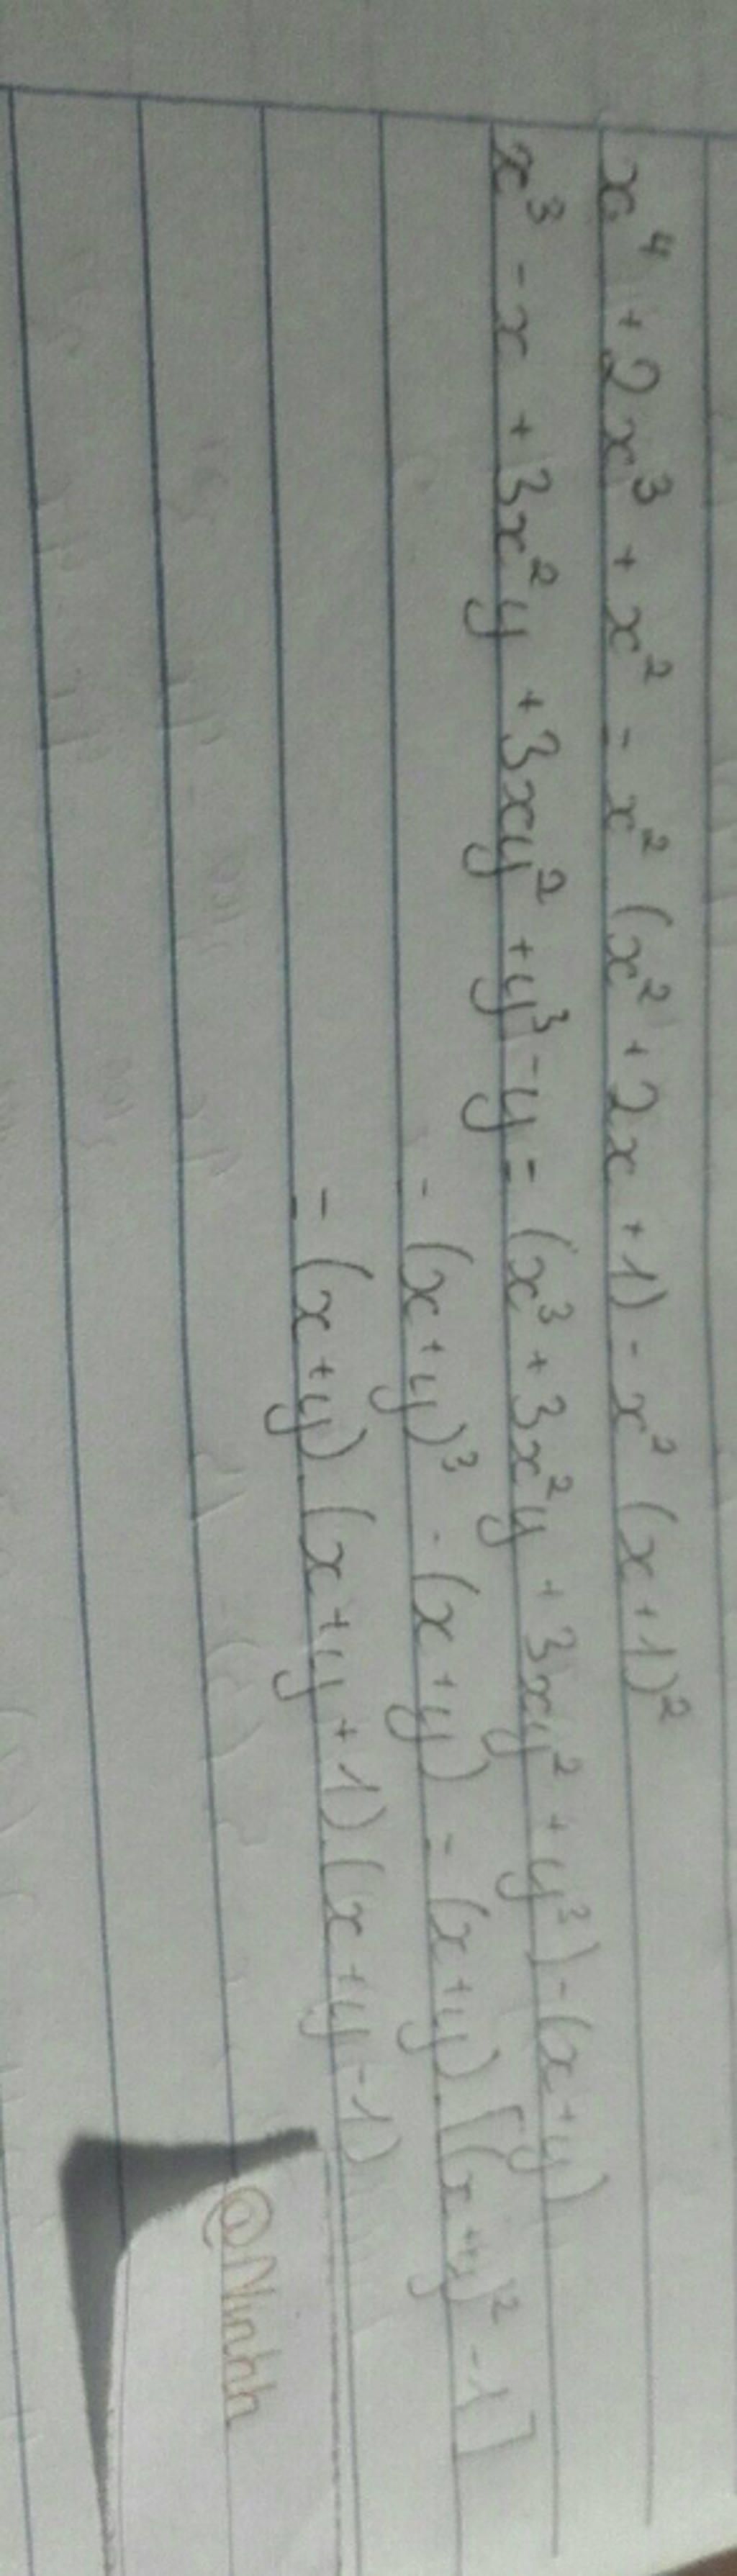 x⁴ + 2x³ + x² = x² (x² + 2x + 1) = x² (x+1)²
x³ - x + 3x²y + 3xy² + y³ - y = (x³ + 3x²y + 3xy² + y³) - (x+y)
= (x+y)³ - (x+y) = (x+y) [(x+y)² - 1]
= (x+y) (x+y+1) (x+y-1)
@Ninhh